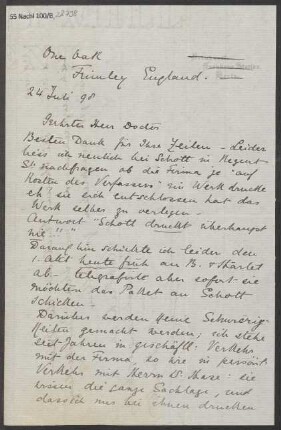 55 Nachl 100/B,
One Oak
Frimley England.
24 Juli 98
Geehrter Herr Doctor
Besten Dank für Ihre Zeilen – Leider
liess ich neulich bei Schott in Regent
St. nachfragen ob die Firma je "auf
Kosten des Verfassers" ein Werk drucke
eh' sie sich entschlossen hat das
Werk selber zu verlegen –
Antwort "Schott druckt überhaupt
nie"!"
Daraufhin schickte ich leider den
1. Akt heute früh an B. & Härtel
ab – telegrafirte aber sofort sie
möchten das Paket an Schott
schicken –
Darüber werden keine Schwierig-
keiten gemacht werden; ich stehe
seit Jahren in geschäftl. Verkehr
mit der Firma, so wie in persönl.
Verkehr mit Herrn v. Hase: sie
wissen die ganze Sachlage, und
dass ich nur bei ihnen drucken